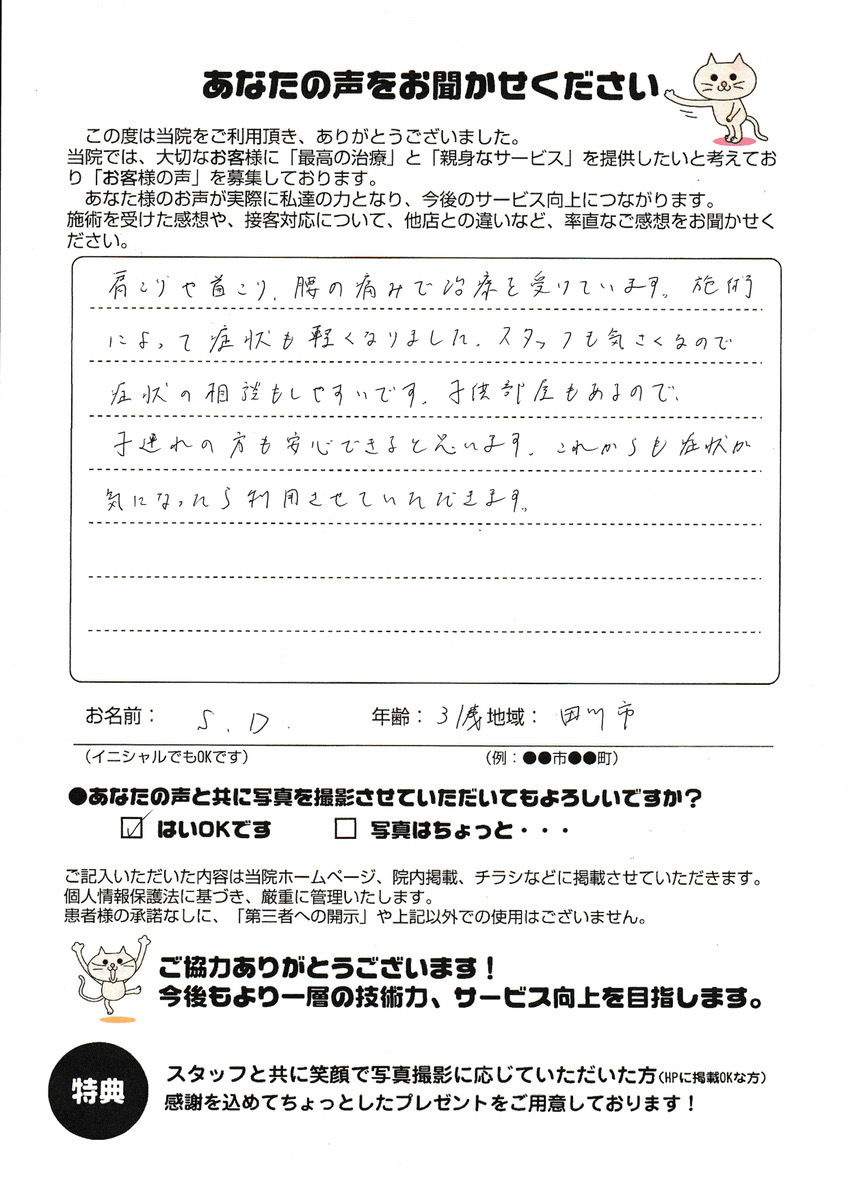 あなたの声をお聞かせください
この度は当院をご利用頂き、ありがとうございました。
当院では、大切なお客様に「最高の治療」と「親身なサービス」を提供したいと考えてお
り「お客様の声」を募集しております。
あなた様のお声が実際に私達の力となり、今後のサービス向上につながります。
施術を受けた感想や、接客対応について、他店との違いなど、率直なご感想をお聞かせく
ださい。
肩こりや首こり、腰の痛みで治療を受けています。施術
によって症状も軽くなりました。スタッフも気さくなので
症状の相談もしやすいです。子供部屋もあるので、
子連れの方も安心できると思います。これからも症状が
気になったら利用させていただきます。
お名前： S.D. 年齢：31歳 地域：田川市
（イニシャルでもOKです） （例：●●市●●町）
●あなたの声と共に写真を撮影させていただいてもよろしいですか？
☑ はいOKです □ 写真はちょっと・・・
ご記入いただいた内容は当院ホームページ、院内掲載、チラシなどに掲載させていただきます。
個人情報保護法に基づき、厳重に管理いたします。
患者様の承諾なしに、「第三者への開示」や上記以外での使用はございません。
ご協力ありがとうございます！
今後もより一層の技術力、サービス向上を目指します。
特典
スタッフと共に笑顔で写真撮影に応じていただいた方（HPに掲載OKな方）
感謝を込めてちょっとしたプレゼントをご用意しております！